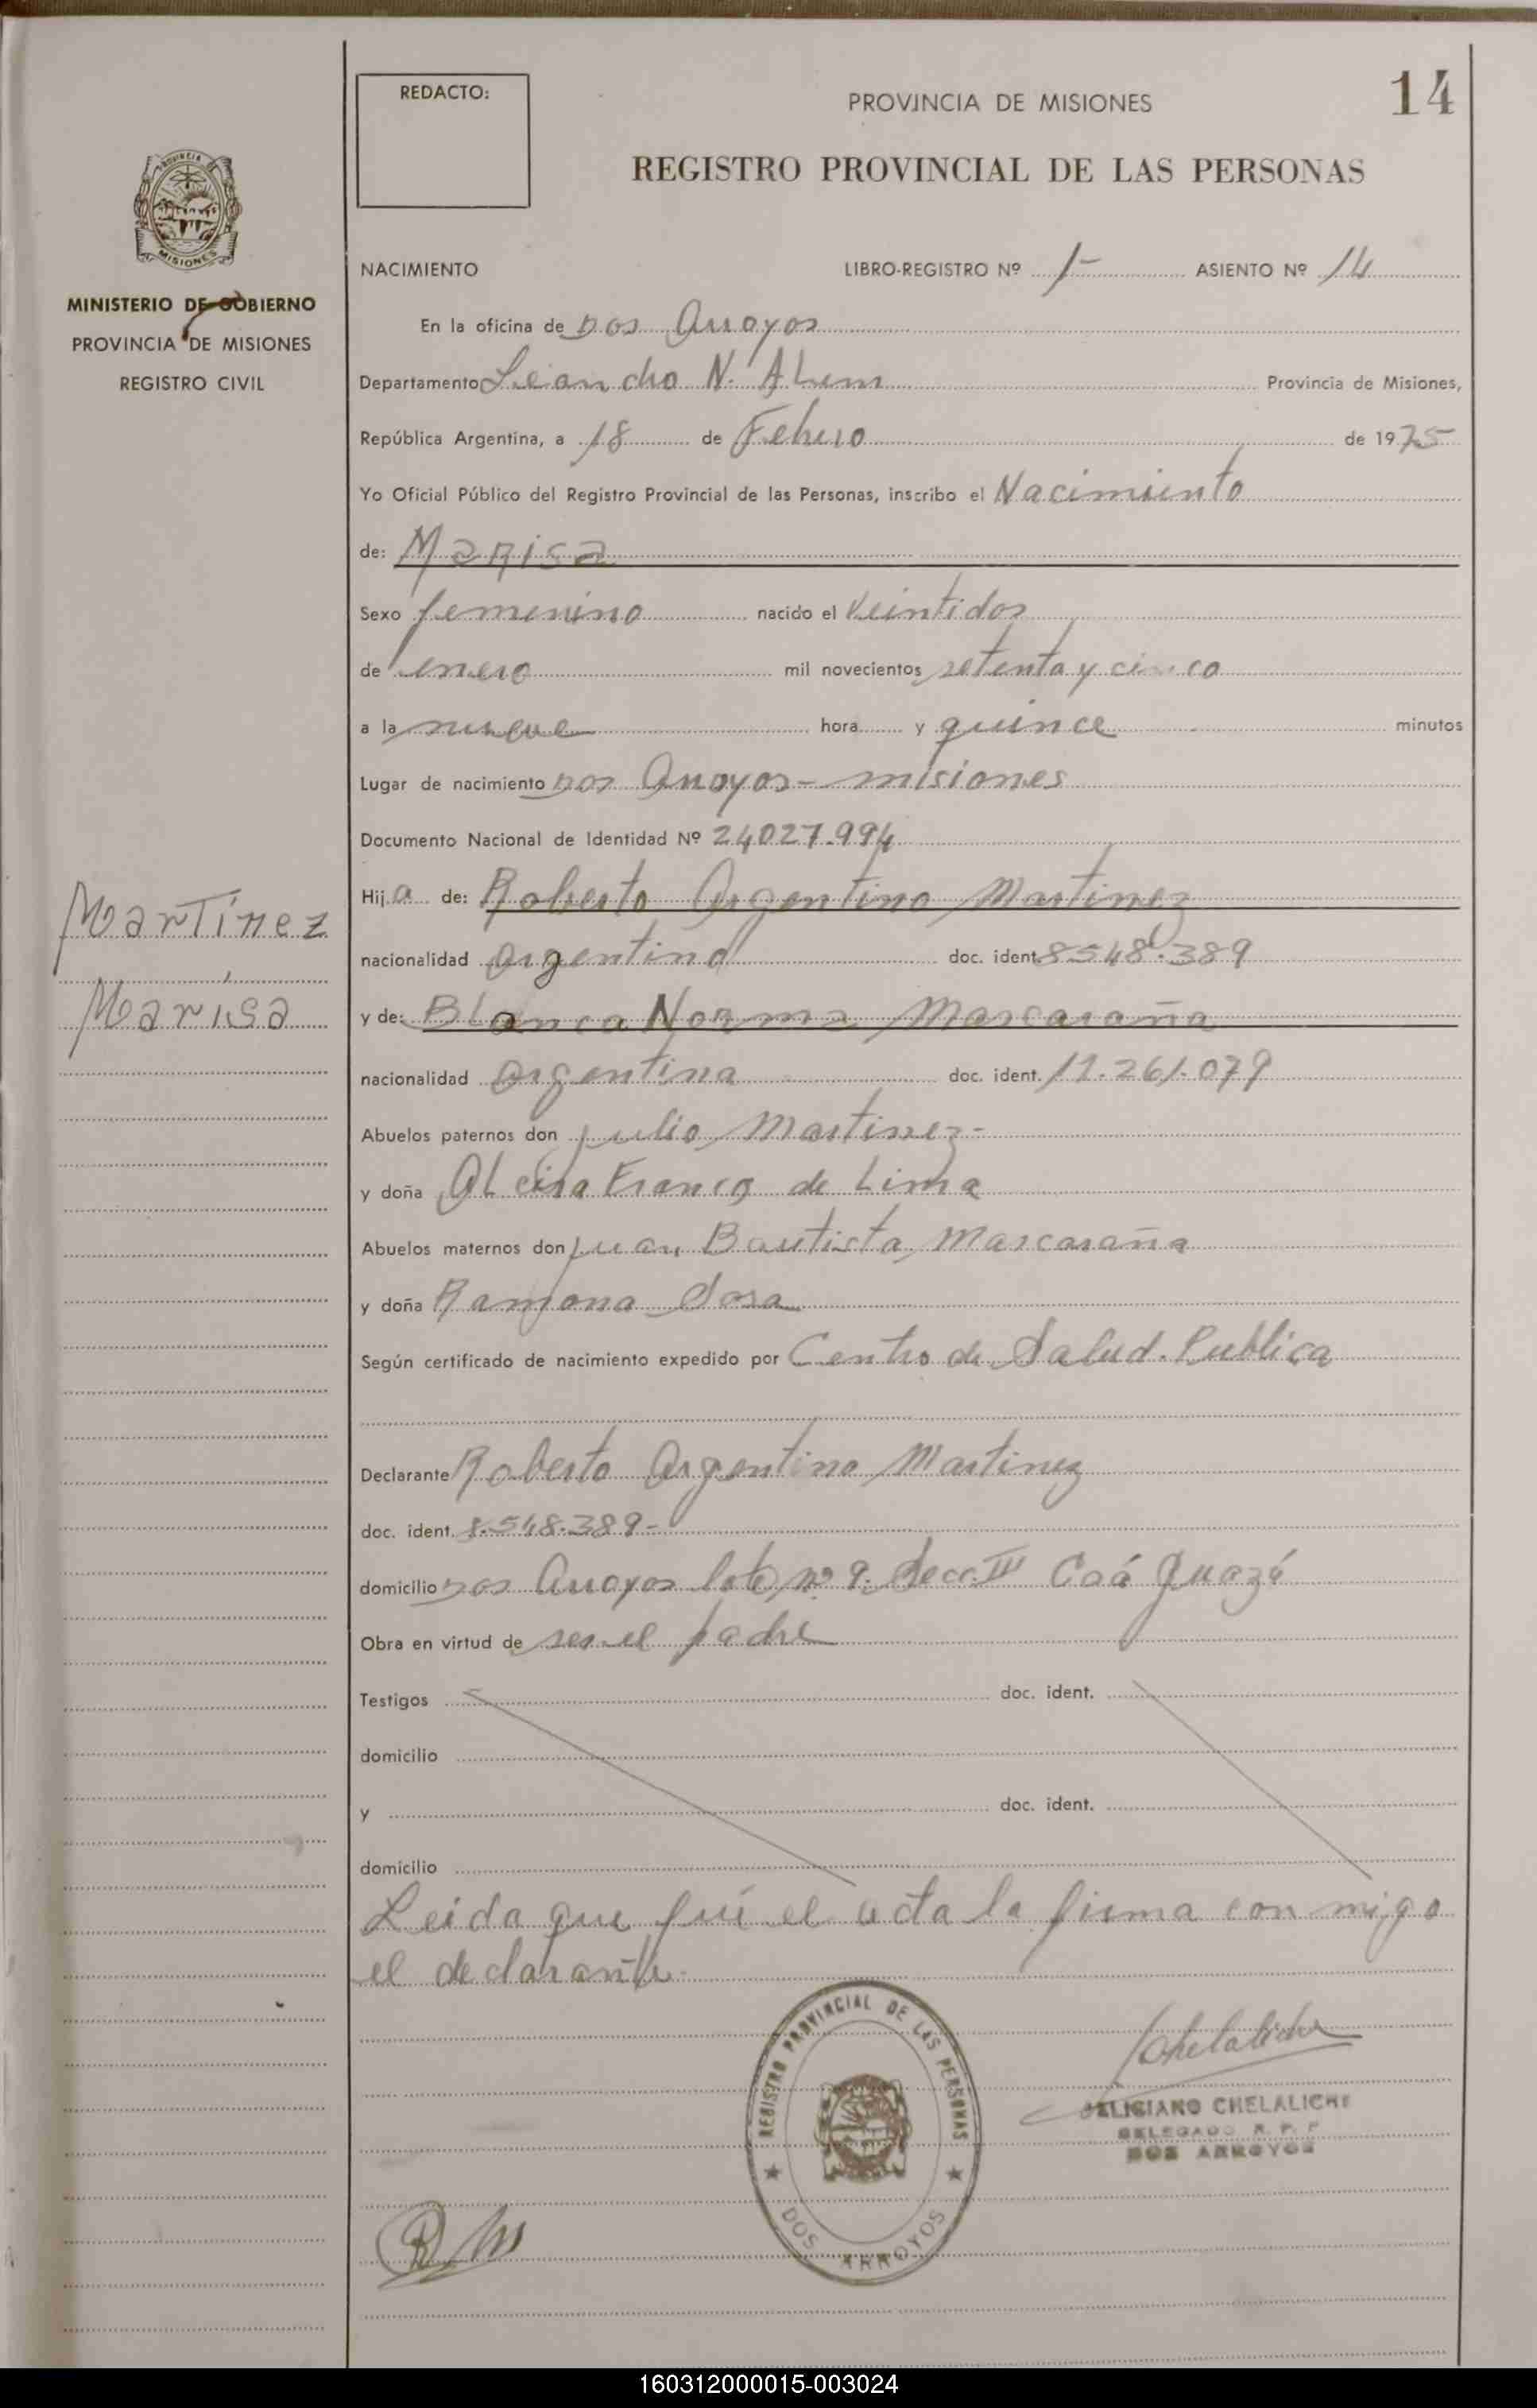 14
REDACTO:
PROVINCIA DE MISIONES
REGISTRO PROVINCIAL DE LAS PERSONAS
PROVINCIA DE
MISIONES
MINISTERIO DE GOBIERNO
PROVINCIA DE MISIONES
REGISTRO CIVIL
NACIMIENTO LIBRO-REGISTRO Nº 1- ASIENTO Nº 14
En la oficina de Dos Arroyos
Departamento Leandro N. Alem Provincia de Misiones,
República Argentina, a 18 de Febrero de 1975
Yo Oficial Público del Registro Provincial de las Personas, inscribo el Nacimiento
de: Marisa
Sexo femenino nacido el Veintidos
de enero mil novecientos setenta y cinco
a la nueve hora y quince minutos
Lugar de nacimiento Dos Arroyos - misiones
Documento Nacional de Identidad Nº 24027.994
Hija de: Roberto Argentino Martinez
Martínez
nacionalidad argentino doc. ident 8548.389
Marisa
y de: Blanca Norma Mascaraña
nacionalidad Argentina doc. ident. 11.261.079
Abuelos paternos don julio Martinez-
y doña Alcira Franco de Lima
Abuelos maternos don juan Bautista Mascaraña
y doña Ramona Sosa
Según certificado de nacimiento expedido por Centro de Salud. Publica
Declarante Roberto Argentino Martinez
doc. ident. 8.548.389-
domicilio Dos Arroyos lote nº 9. Secc. III Caá Guazú
Obra en virtud de ser el padre
Testigos doc. ident.
domicilio
y doc. ident.
domicilio
Leida que fué el acta la firma con migo
el declarante.
REGISTRO PROVINCIAL DE LAS PERSONAS
DOS ARROYOS
Chelaliche
FELICIANO CHELALICHE
DELEGADO R. P. P.
DOS ARROYOS
160312000015-003024